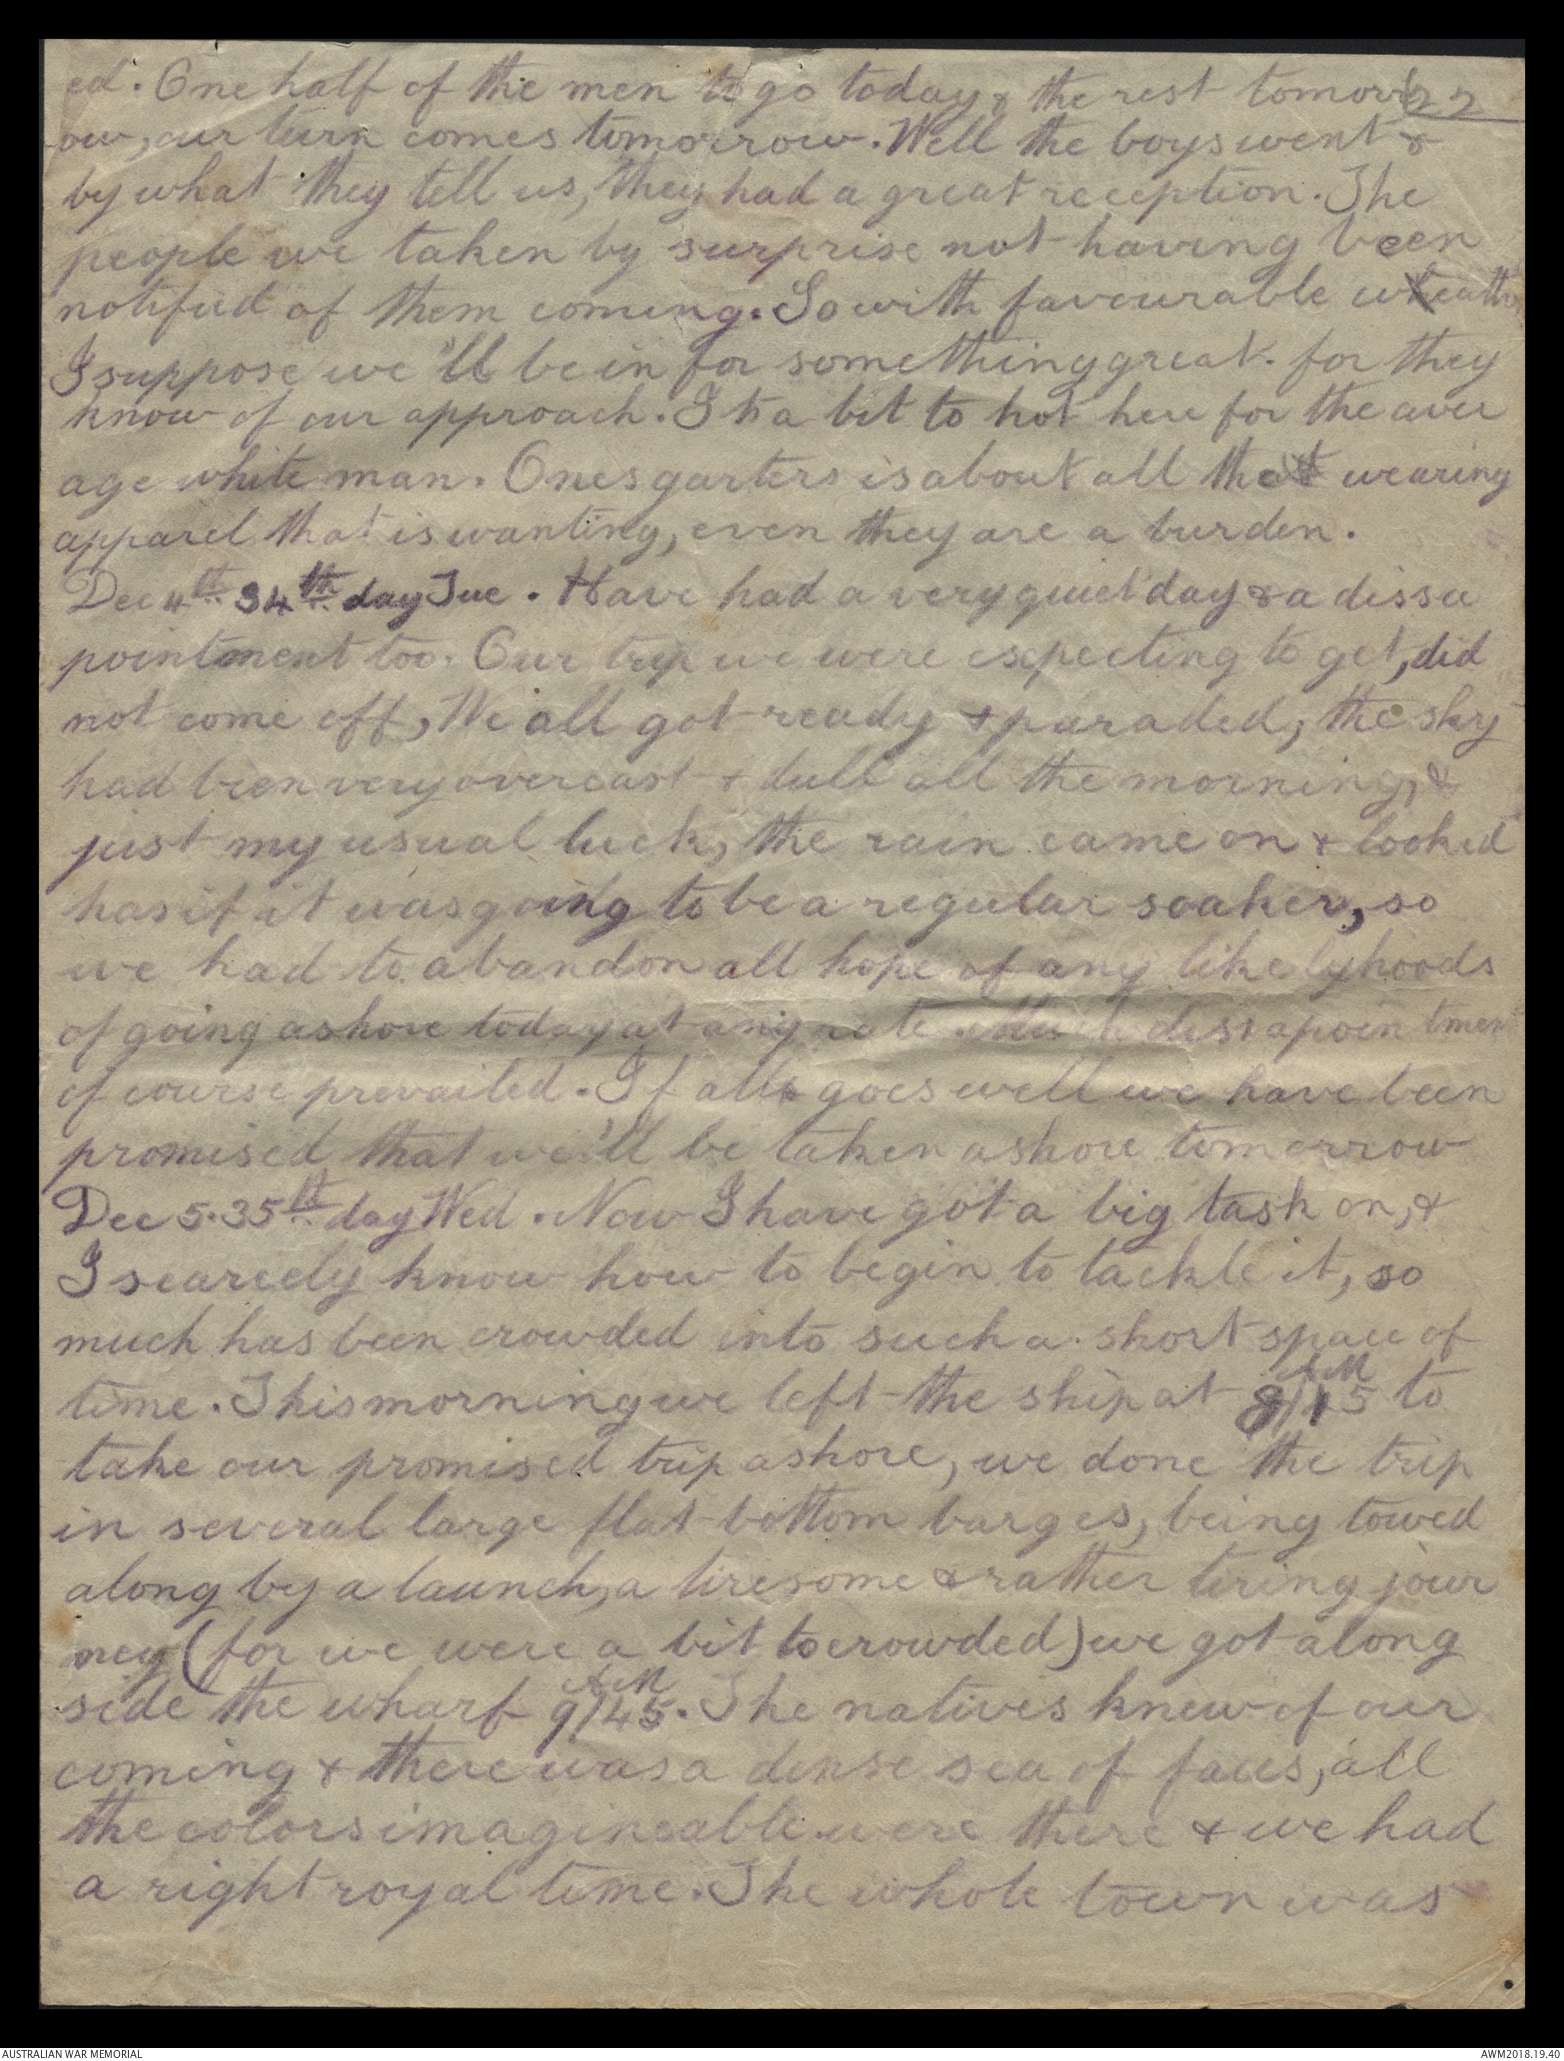 22
ed. One half of the men to go today & the rest tomorr
ow, our turn comes tomorrow. Well the boys went &
by what they tell us, they had a great reception. The
people we taken by surprise not having been
notified of them coming. So with favourable weather
I suppose we'll be in for something great. for they
know of our approach. Its a bit to hot here for the aver
age white man. Ones garters is about all the wearing
apparel that is wanting, even they are a burden.
Dec 4th 34th day Tue. Have had a very quiet day & a dissa
pointment too. Our trip we were expecting to get, did
not come off, We all got ready & paraded, the sky
had been very overcast & dull all the morning, &
just my usual luck, the rain came on & looked
has if it was going to be a regular soaker, so
we had to abandon all hope of any likelyhoods
of going ashore today at any rate. Much dissapointment
of course prevailed. If all goes well we have been
promised that we'll be taken ashore tomorrow
Dec 5. 35th day Wed. Now I have got a big task on, &
I scarcely know how to begin to tackle it, so
much has been crowded into such a short space of
time. This morning we left the ship at 8/15 AM to
take our promised trip ashore, we done the trip
in several large flat bottom barges, being towed
along by a launch, a tiresome & rather tiring jour
ney (for we were a bit to crowded) we got along
side the wharf 9/45 AM. The natives knew of our
coming & there was a dense sea of faces, all
the colors imagineable were there & we had
a right royal time. The whole town was
AUSTRALIAN WAR MEMORIAL
AWM2018.19.40